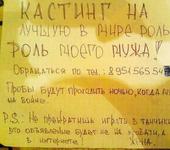 КАСТИНГ НА
ЛУЧШУЮ В МИРЕ РОЛЬ
РОЛЬ МОЕГО МУЖА!
Обращаться по тел.: 8 954 565 54
Пробы будут проходить ночью, когда
на войне.
P.S.: Не прекратишь играть в танчики
это объявление будет не на
в интернете! ЖЕНА.